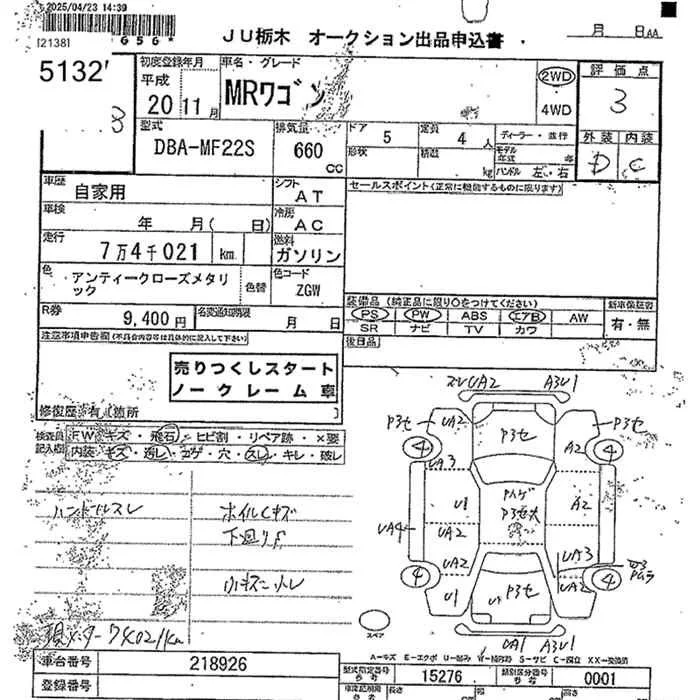 2025/04/23 14:39
[2138]
656*
JU栃木 オークション出品申込書
月 日AA
5132
初度登録年月
平成
20 11月
車名・グレード
MRワゴン
2WD
4WD
評価点
3
外装 内装
D C
型式
DBA-MF22S
排気量
660
CC
ドア 5
定員 4 人
形状
積載 kg
ディーラー・並行
モデル年式 年
ハンドル 左・右
車歴
自家用
シフト
AT
セールスポイント(正常に機能するものに限ります)
車検
年 月( 日)
冷房
AC
走行
7万4千021 km
燃料
ガソリン
色
アンティークローズメタリック
色替
色コード
ZGW
R券
9,400円
名変通知期限
月 日
装備品(純正品に限り○をつけてください)
PS PW ABS エアB AW
SR ナビ TV カワ
新車保証書
有・無
後日品
注意事項申告欄(不具合内容等は具体的に記入して下さい)
売りつくしスタート
ノークレーム車
修復歴 有(箇所 )
検査員記入欄
FW キズ・飛石・ヒビ割・リペア跡・×要
内装 キズ・汚レ・コゲ・穴・スレ・キレ・破レ
ハンドルスレ
ホイルキズ
下廻りS
小キズ
A3U1
P3セ
UA2
P3セ
P3セ
4
4
UA3
A2
U1
A2
UA4
UA2
UA2
UA3
4
P3セ
4
U1
UA2
UA1 A3U1
スペア
A=キズ E=エクボ U=凹み W=補修跡 S=サビ C=腐食 XX=交換済
車台番号
218926
登録番号
型式指定番号
参考
15276
類別区分番号
参考
0001